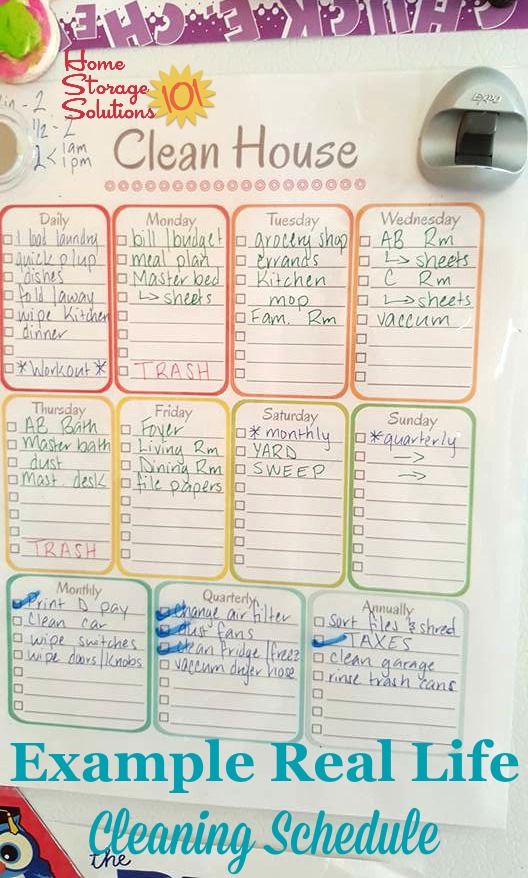 CHUCK-E-CHE
Home
Storage
Solutions
101
in - 2
1/2 - 2
2 < 1am
1pm
EXPO
Clean House
Daily
1 load laundry
quick p/up
dishes
fold/away
wipe Kitchen
dinner
*Workout*
Monday
bill/budget
meal plan
Master bed
↳ sheets
TRASH
Tuesday
grocery shop
errands
Kitchen
mop
Fam. Rm
Wednesday
AB Rm
↳ sheets
C Rm
↳ sheets
vaccum
Thursday
AB Bath
Master bath
dust
Mast. desk
TRASH
Friday
Foyer
Living Rm
Dining Rm
file papers
Saturday
*monthly
YARD
SWEEP
Sunday
*quarterly
→
→
Monthly
Print D pay
Clean car
wipe switches
wipe doors/knobs
Quarterly
Change air filter
dust fans
clean fridge/freez
vaccum dryer hose
Annually
Sort files & shred
TAXES
clean garage
rinse trash cans
Example Real Life
Cleaning Schedule
the